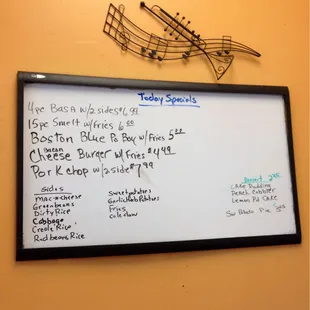 Today Specials
4pc Basa w/2 sides 6.99
15pc Smelt w/Fries 6.00
Boston Blue Po Boy w/Fries 5.00
Bacan
Cheese Burger w/Fries $4.99
Pork chop w/2 side $7.99
Sides
mac & cheese
Greenbeans
Dirty Rice
Cabbage
Creole Rice
Red beans Rice
Sweet potatoes
Garlic Mash Potatoes
Fries
cole slaw
Dessert
Cake Pudding
Peach Cobbler
Lemon Pd Cake
Sw Potato Pie